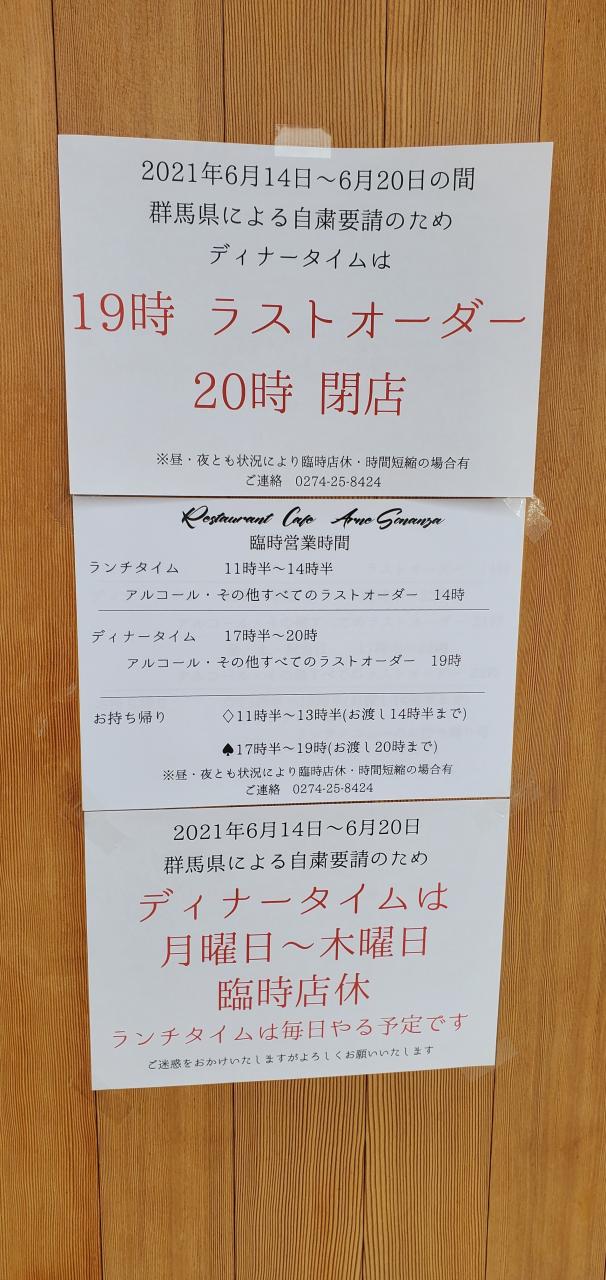 2021年6月14日～6月20日の間
群馬県による自粛要請のため
ディナータイムは
19時 ラストオーダー
20時 閉店
※昼・夜とも状況により臨時店休・時間短縮の場合有
ご連絡 0274-25-8424
Restaurant Cafe Arno Sonanza
臨時営業時間
ランチタイム 11時半～14時半
アルコール・その他すべてのラストオーダー 14時
ディナータイム 17時半～20時
アルコール・その他すべてのラストオーダー 19時
お持ち帰り ♢11時半～13時半(お渡し14時半まで)
♠17時半～19時(お渡し20時まで)
※昼・夜とも状況により臨時店休・時間短縮の場合有
ご連絡 0274-25-8424
2021年6月14日～6月20日
群馬県による自粛要請のため
ディナータイムは
月曜日～木曜日
臨時店休
ランチタイムは毎日やる予定です
ご迷惑をおかけいたしますがよろしくお願いいたします